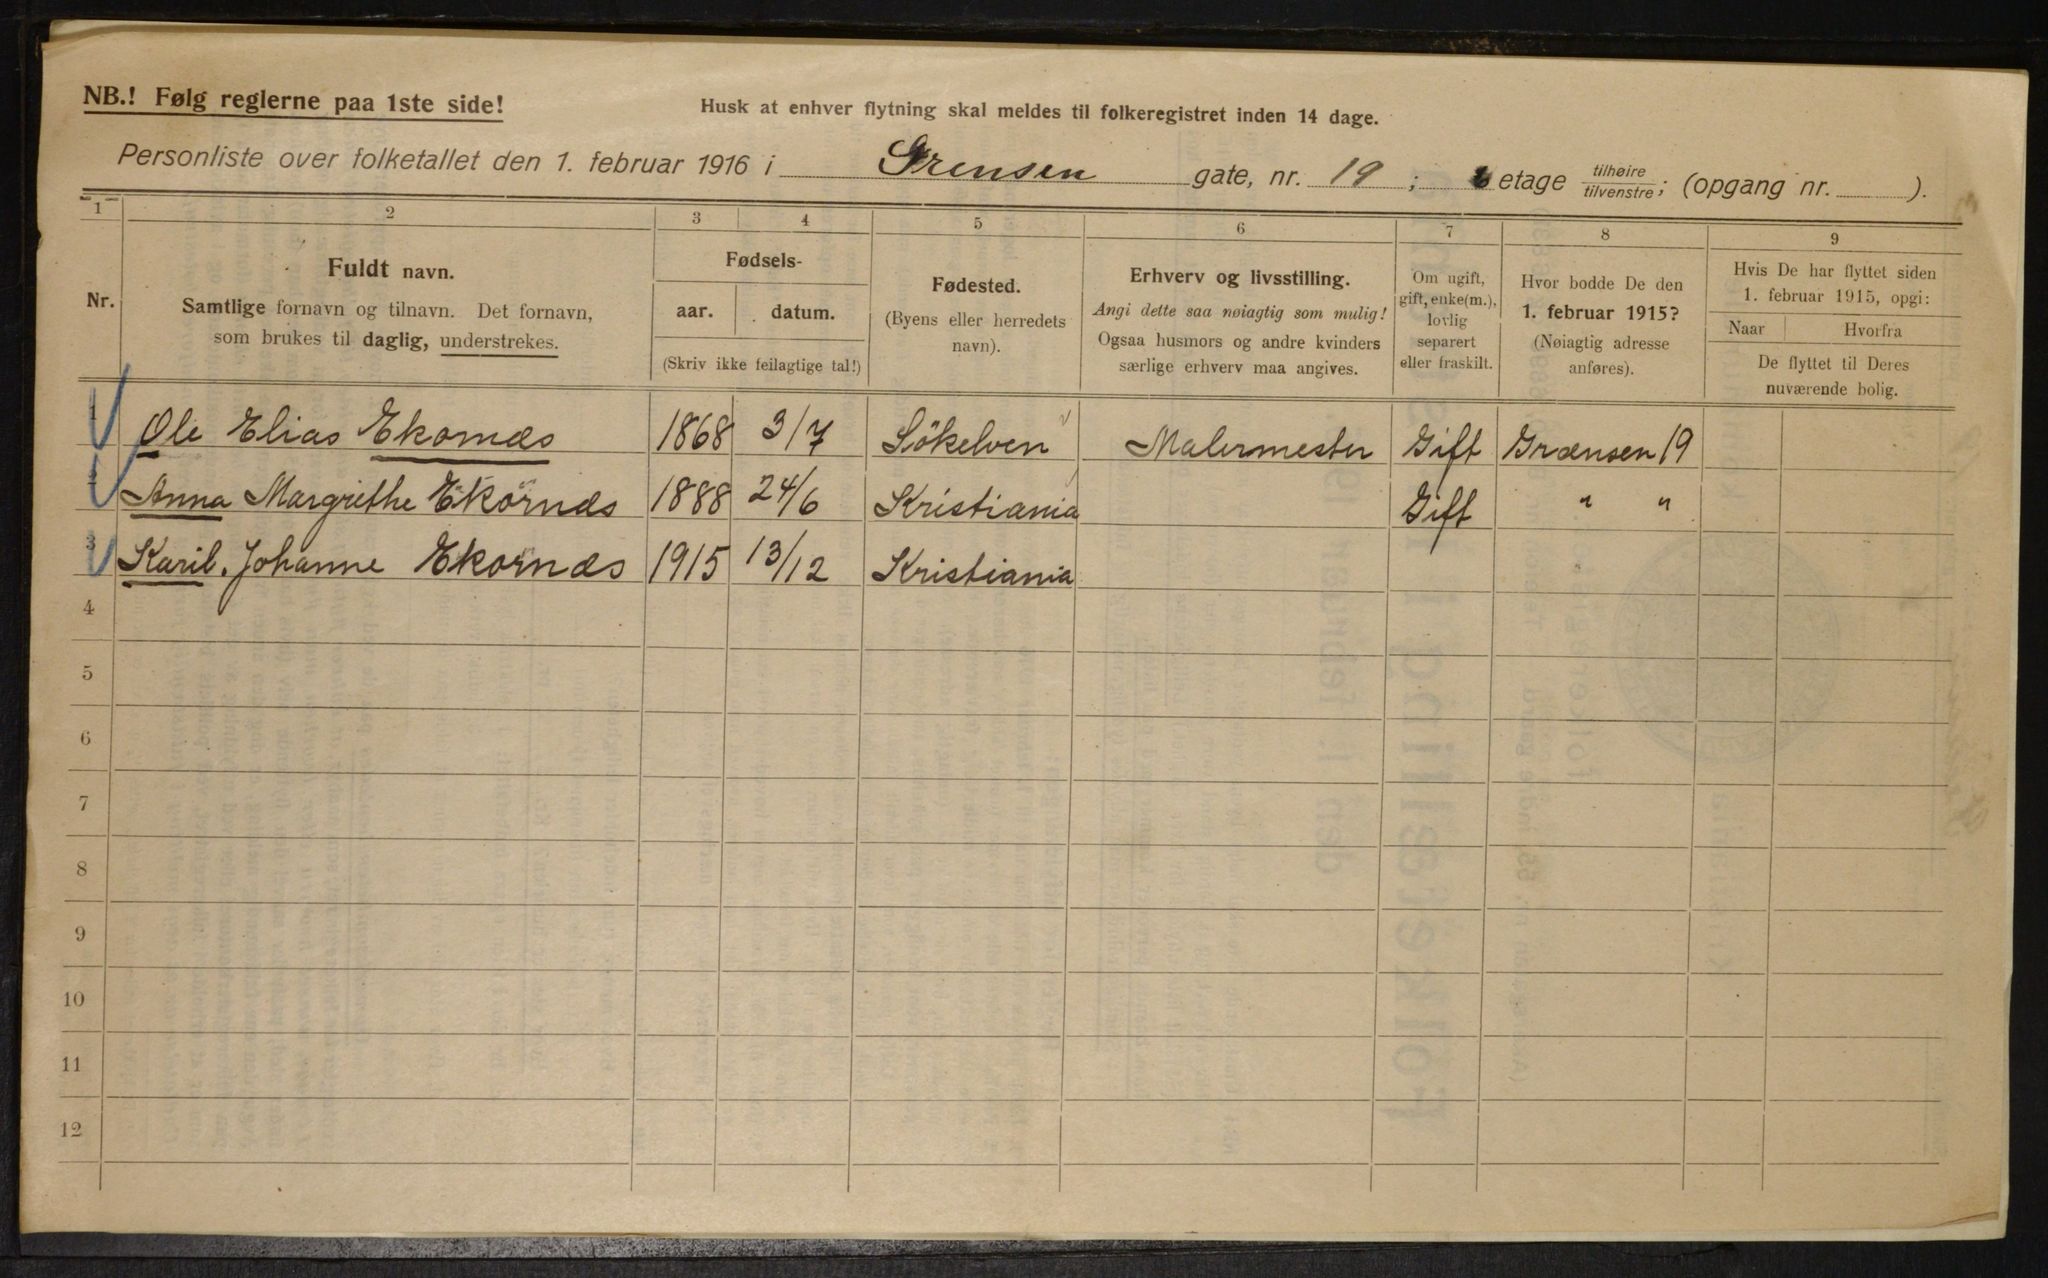 NB.! Følg reglerne paa 1ste side!
Husk at enhver flytning skal meldes til folkeregistret inden 14 dage.
Personliste over folketallet den 1. februar 1916 i Grensen gate, nr. 19; etage tilhøire/tilvenstre; (opgang nr. ).
1 2 3 4 5 6 7 8 9
Nr.
Fuldt navn.
Samtlige fornavn og tilnavn. Det fornavn,
som brukes til daglig, understrekes.
Fødsels-
aar. datum.
(Skriv ikke feilagtige tal!)
Fødested.
(Byens eller herredets
navn).
Erhverv og livsstilling.
Angi dette saa nøiagtig som mulig!
Ogsaa husmors og andre kvinders
særlige erhverv maa angives.
Om ugift,
gift, enke(m.),
lovlig
separert
eller fraskilt.
Hvor bodde De den
1. februar 1915?
(Nøiagtig adresse
anføres).
Hvis De har flyttet siden
1. februar 1915, opgi:
Naar Hvorfra
De flyttet til Deres
nuværende bolig.
1 Ole Elias Ekornæs 1868 3/7 Sökelven Malermester Gift Grænsen 19
2 Anna Margrethe Ekornæs 1888 24/6 Kristiania Gift " "
3 Karil. Johanne Ekornæs 1915 13/12 Kristiania
4
5
6
7
8
9
10
11
12